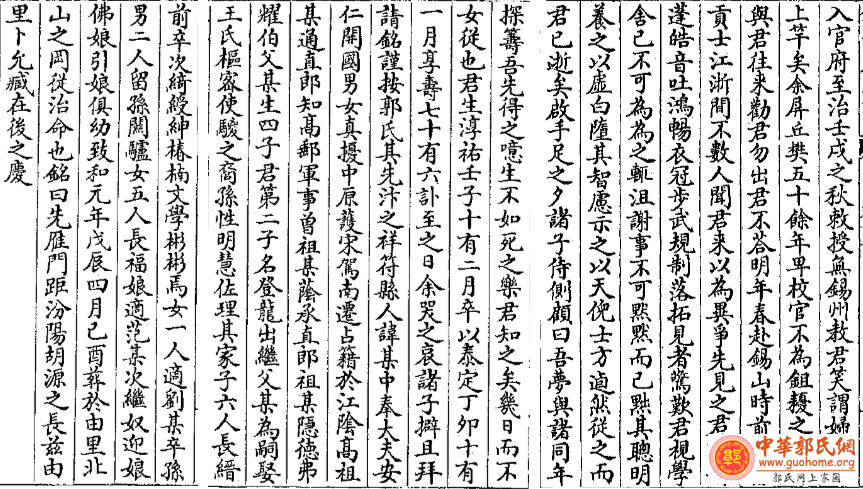 入官府至治壬戌之秋敕授無錫州教君笑謂婦
上竿矣余屏丘樊五十餘年畢校官不為鉏耰之
與君往来勸君勿出君不荅明年春赴錫山時前
貢士江浙間不數人聞君来以為異爭先見之君
蓬皓音吐鴻暢衣冠步武規制落拓見者驚歎君視學
舍已不可為為之輒沮謝事不可黙黙而已㸃其聰明
養之以虚白墮其智慮示之以天倪士方適然従之而
君已逝矣啟手足之夕諸子侍側顧曰吾夢與諸同年
探籌吾先得之噫生不如死之樂君知之矣幾日而不
女従也君生淳祐壬子十有二月卒以泰定丁夘十有
一月享壽七十有六訃至之日余哭之哀諸子擗且拜
請銘謹按郭氏其先汴之祥符縣人諱某中奉大夫安
仁開國男女真擾中原䕶宋駕南遷占籍於江陰髙祖
某通直郎知髙郵軍事曾祖某䕃承直郎祖某隠德弗
耀伯父某生四子君第二子名登龍出繼父某為嗣娶
王氏樞宻使駿之裔孫性明慧佐理其家子六人長縉
前卒次綺綬紳椿楠文學彬彬焉女一人適劉某卒孫
男二人留孫闗驢女五人長福娘適范某次繼奴迎娘
佛娘引娘俱幼致和元年戊辰四月己酉葬於由里北
山之岡従治命也銘曰先雁門距汾陽胡源之長兹由
里卜允臧在後之慶
中華郭氏網
www.guohome.org
郭氏网上家园